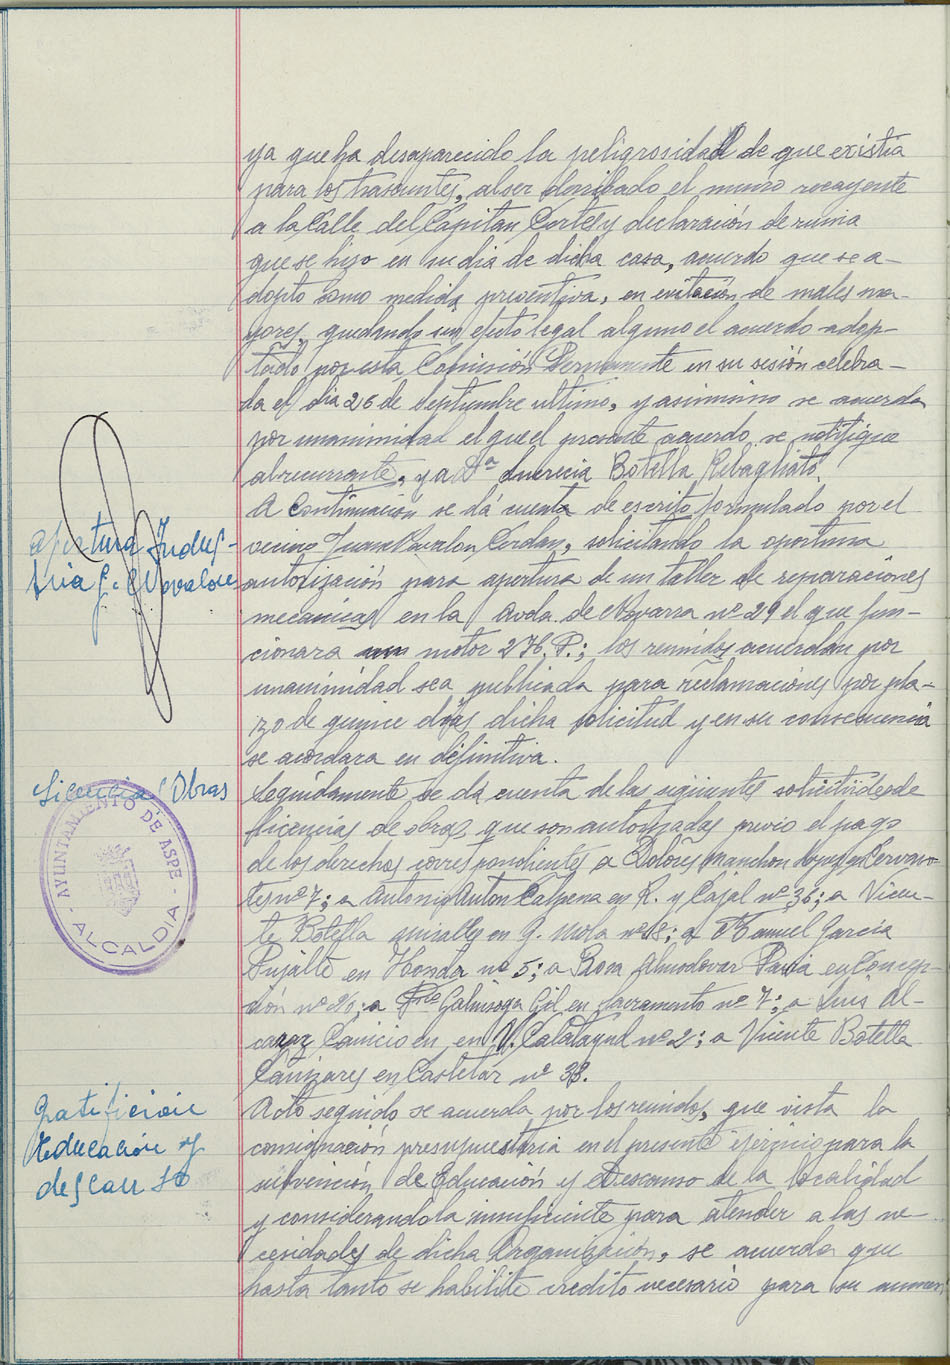 ya que ha desaparecido la peligrosidad de que existia
para los trascuntes, al ser derribado el muro recayente
a la Calle del Capitan Cortes y declaración de ruina
que se hizo en su dia de dicha casa, acuerdo que se a-
dopto como medida preventiva, en evitación de males ma-
yores, quedando sin efecto legal alguno el acuerdo adop-
tado por esta Comisión Permanente en su sesión celebra-
da el dia 26 de Septiembre ultimo, y asimismo se acuerda
por unanimidad el que el presente acuerdo se notifique
al recurrente, y a Dª Lucrecia Botella Rebagliato.
A continuación se dá cuenta de escrito formulado por el
vecino Juan Navalon Cerdan, solicitando la oportuna
autorización para apertura de un taller de reparaciones
mecanicas en la Avda. de Navarra nº 29 el que fun-
cionara un motor 2 H.P.; los reunidos acuerdan por
unanimidad sea publicada para reclamaciones por pla-
zo de quince dias dicha solicitud y en su consecuencia
se acordara en definitiva.
Seguidamente se dá cuenta de las siguientes solicitudes de
licencias de obras, que son autorizadas previo el pago
de los derechos correspondientes a Dolores Manchon en Cervan-
tes nº 7; a Antonio Anton Calpena en R. y Cajal nº 36; a Vicen-
te Botella en G. Mola nº 18; a Manuel Garcia
Pujalte en Honda nº 5; a Rosa Almodovar Pavia en Concep-
ción nº; a Galinsoga Gil en Sacramento nº 7; a Luis Al-
caraz en V. Calatayud nº 2; a Vicente Botella
Cañizares en Castelar nº 33.
Acto seguido se acuerda por los reunidos, que vista la
consignación presupuestaria en el presente ejercicio para la
subvención de Educación y Descanso de la localidad
y considerandola insuficiente para atender a las ne-
cesidades de dicha Organización, se acuerda que
hasta tanto se habilite credito necesario para su aumen
Apertura Indus-
tria J. Navalon
Licencias Obras
AYUNTAMIENTO DE ASPE - ALCALDIA -
Gratificación
Educación y
descanso